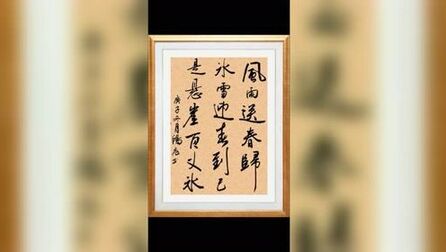 風雨送春歸
飛雪迎春到已
是懸崖百丈冰
庚子